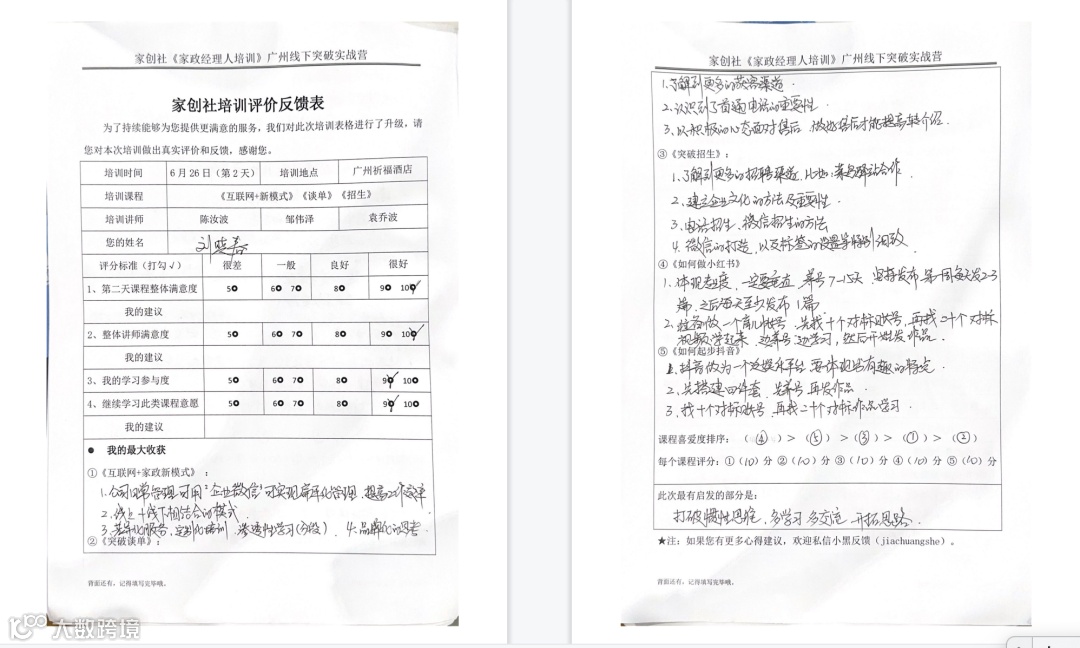 家创社《家政经理人培训》广州线下突破实战营
家创社培训评价反馈表
为了持续能够为您提供更满意的服务，我们对此次培训表格进行了升级，请
您对本次培训做出真实评价和反馈，感谢您。
培训时间 6月26日（第2天） 培训地点 广州祈福酒店
培训课程 《互联网+新模式》《谈单》《招生》
培训讲师 陈汝波 邹伟泽 袁乔波
您的姓名
评分标准（打勾√） 很差 一般 良好 很好
1、第二天课程整体满意度 5 6 7 8 9 10
我的建议
2、整体讲师满意度 5 6 7 8 9 10
我的建议
3、我的学习参与度 5 6 7 8 9 10
4、继续学习此类课程意愿 5 6 7 8 9 10
我的建议
● 我的最大收获
①《互联网+家政新模式》：
1.公司日常管理可用"企业微信"可实现扁平化管理，提高工作效率
2.线上+线下相结合的模式
3.差异化服务，定制化培训，渗透性学习(分段) 4.品牌化的思考
②《突破谈单》：
背面还有，记得填写完毕哦。
家创社《家政经理人培训》广州线下突破实战营
1.了解到更多的获客渠道.
2.认识到了首通电话的重要性.
3.以积极的心态面对售后，做好售后才能提高转介绍.
③《突破招生》：
1.了解到更多的招聘渠道，比如:菜鸟驿站合作.
2.建立企业文化的方法及重要性.
3.电话招生、微信招生的方法
4.微信的打造，以及标签的设置等特别细致
④《如何做小红书》
1.体现态度，一定要垂直，养号7-15天，坚持发布，第一周每天发2-3
篇，之后每天至少发布1篇
2.准备做一个育儿账号，先找十个对标账号，再找二十个对标
视频学起来，边养号边学习，然后开始发作品.
⑤《如何起步抖音》
1.抖音做为一个泛娱乐平台，要体现出有趣的特点.
2.先搭建四件套，先养号再发作品.
3.找十个对标账号，再找二十个对标作品学习.
课程喜爱度排序：（④）>（⑤）>（③）>（①）>（②）
每个课程评分：①（10）分 ②（10）分 ③（10）分 ④（10）分 ⑤（10）分
此次最有启发的部分是：
打破惯性思维，多学习多交流，开拓思路.
★注：如果您有更多心得建议，欢迎私信小黑反馈（jiachuangshe）。
背面还有，记得填写完毕哦。
大数跨境